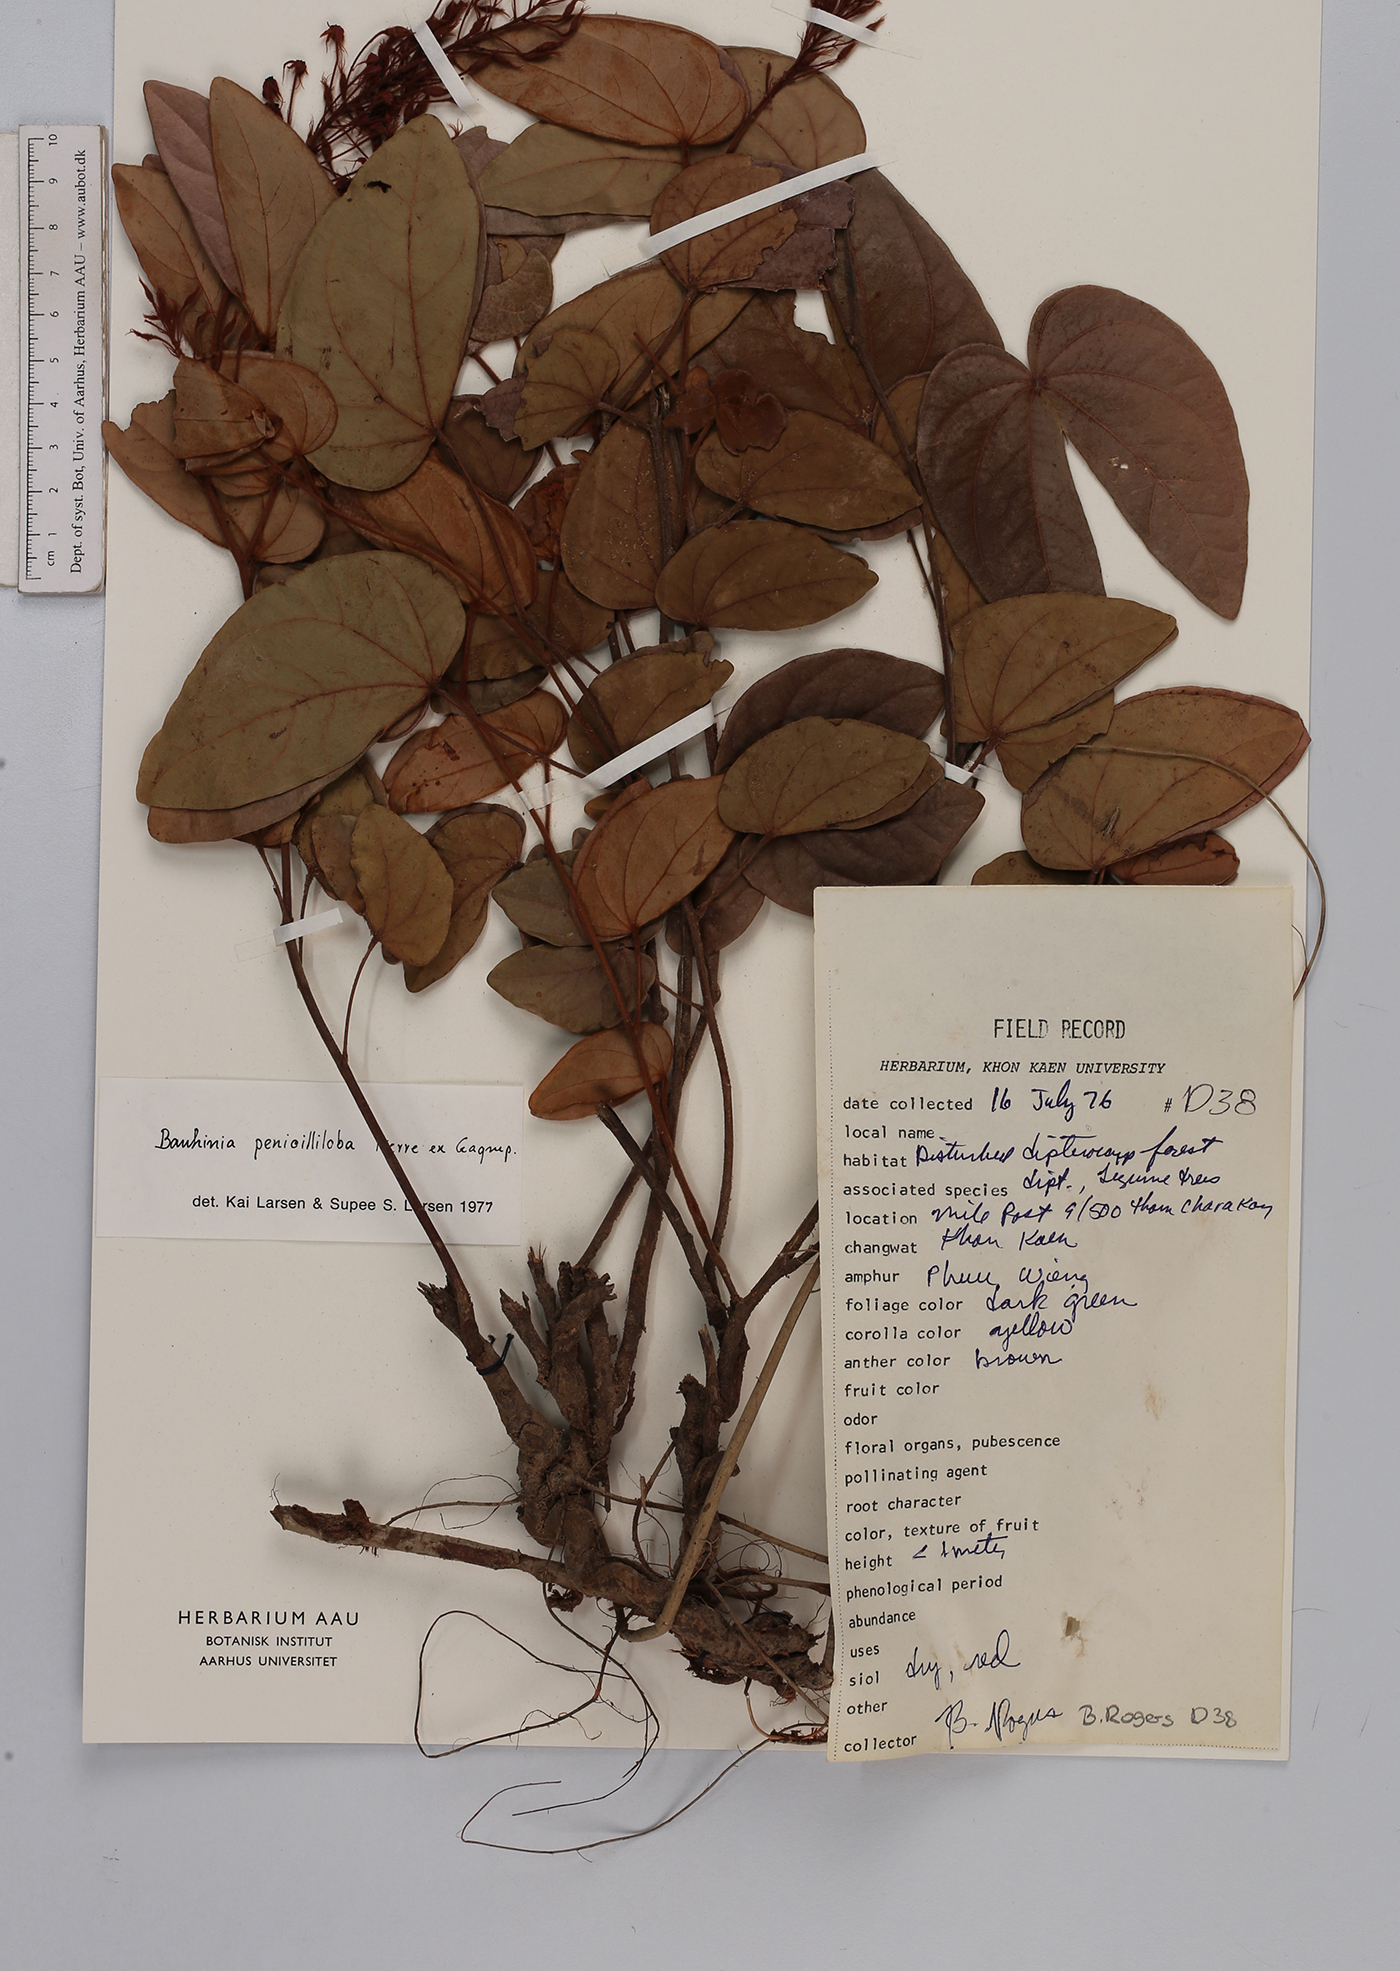 10
9
8
7
6
5
4
3
2
cm 1
Dept. of syst. Bot, Univ. of Aarhus, Herbarium AAU – www.aubot.dk
Bauhinia penicilliloba Pierre ex Gagnep.
det. Kai Larsen & Supee S. Larsen 1977
HERBARIUM AAU
BOTANISK INSTITUT
AARHUS UNIVERSITET
FIELD RECORD
HERBARIUM, KHON KAEN UNIVERSITY
date collected 16 July 76 # D38
local name
habitat Disturbed dipterocarp forest
associated species dipt., Legume trees
location Mile Post 9/500 tham
changwat Khon Kaen
amphur Phuu Wieng
foliage color dark green
corolla color yellow
anther color brown
fruit color
odor
floral organs, pubescence
pollinating agent
root character
color, texture of fruit
height < 1 meter
phenological period
abundance
uses
siol dry, red
other
collector B. Rogers B.Rogers D38